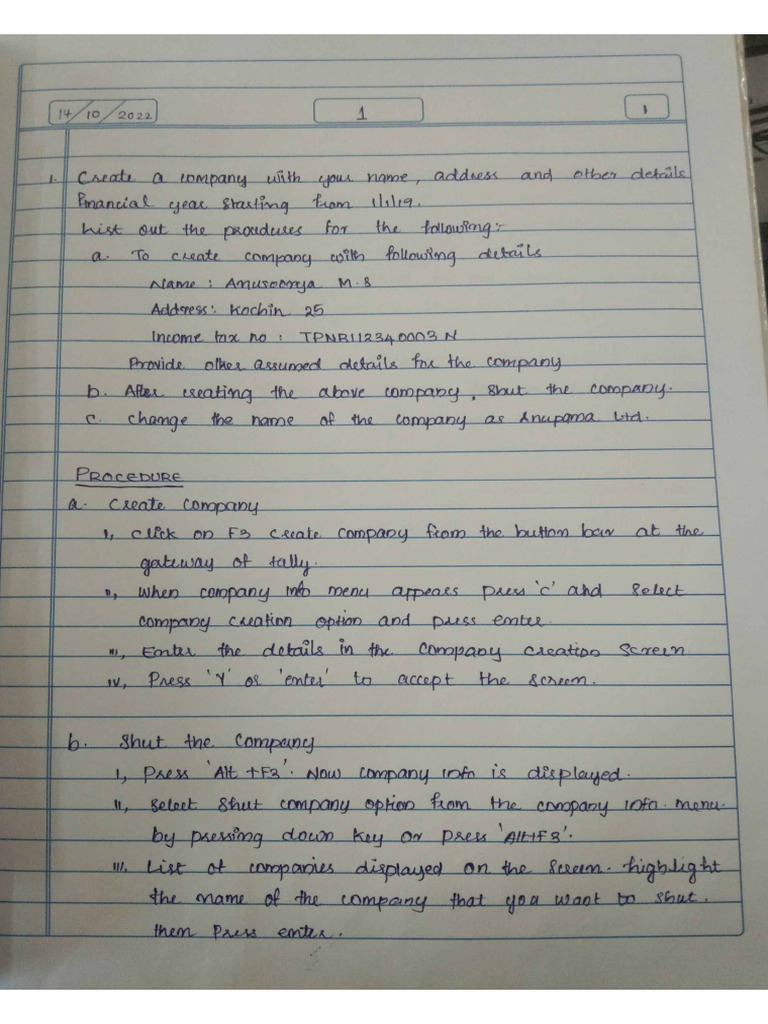 14/10/2022 1 1
1. Create a company with your name, address and other details
Financial year starting from 1/1/19.
List out the procedures for the following:-
a. To create company with following details
Name : Anusoorya M.S
Address: Kochin 25
Income tax no : TPNR112340003N
Provide other assumed details for the company
b. After creating the above company, shut the company.
c. change the name of the company as Anupama Ltd.
PROCEDURE
a. Create company
i, click on F3 create company from the button bar at the
gateway of tally.
ii, When company info menu appears press 'c' and select
company creation option and press enter.
iii, Enter the details in the company creation screen
iv, Press 'Y' or 'enter' to accept the screen.
b. Shut the company
i, Press 'Alt +F3'. Now company info is displayed.
ii, select shut company option from the company info. menu.
by pressing down key or press 'Alt+F3'.
iii. List of companies displayed on the screen. highlight
the name of the company that you want to shut.
then Press enter.